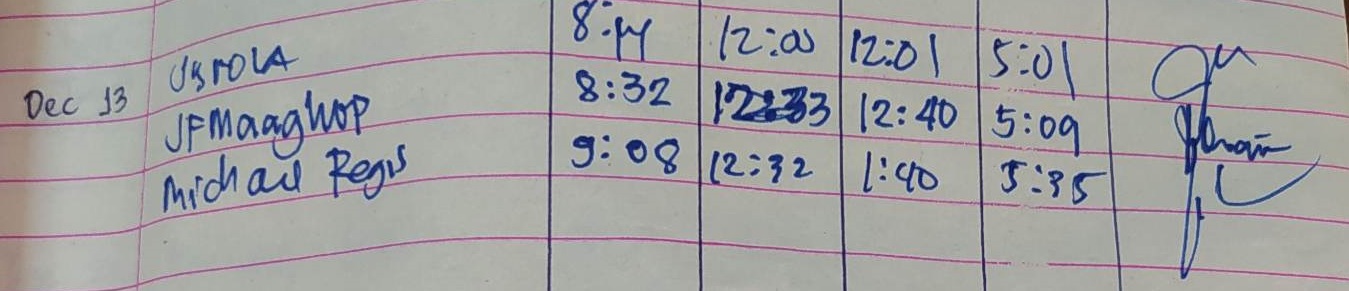 8:14 12:00 12:01 5:01
Dec 13 JFMaaghop 8:32 12:33 12:40 5:09
Michael Regis 9:08 12:32 1:40 5:35